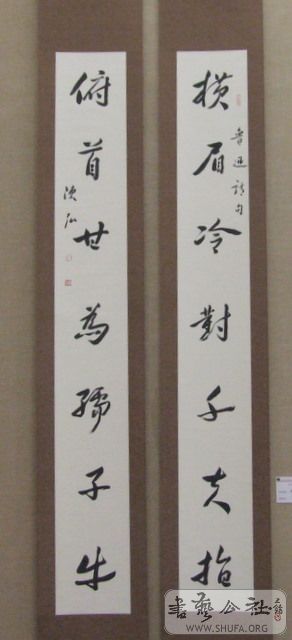 横眉冷對千夫指
魯迅詩句
俯首甘為孺子牛
書藝公社
WWW.SHUFA.ORG